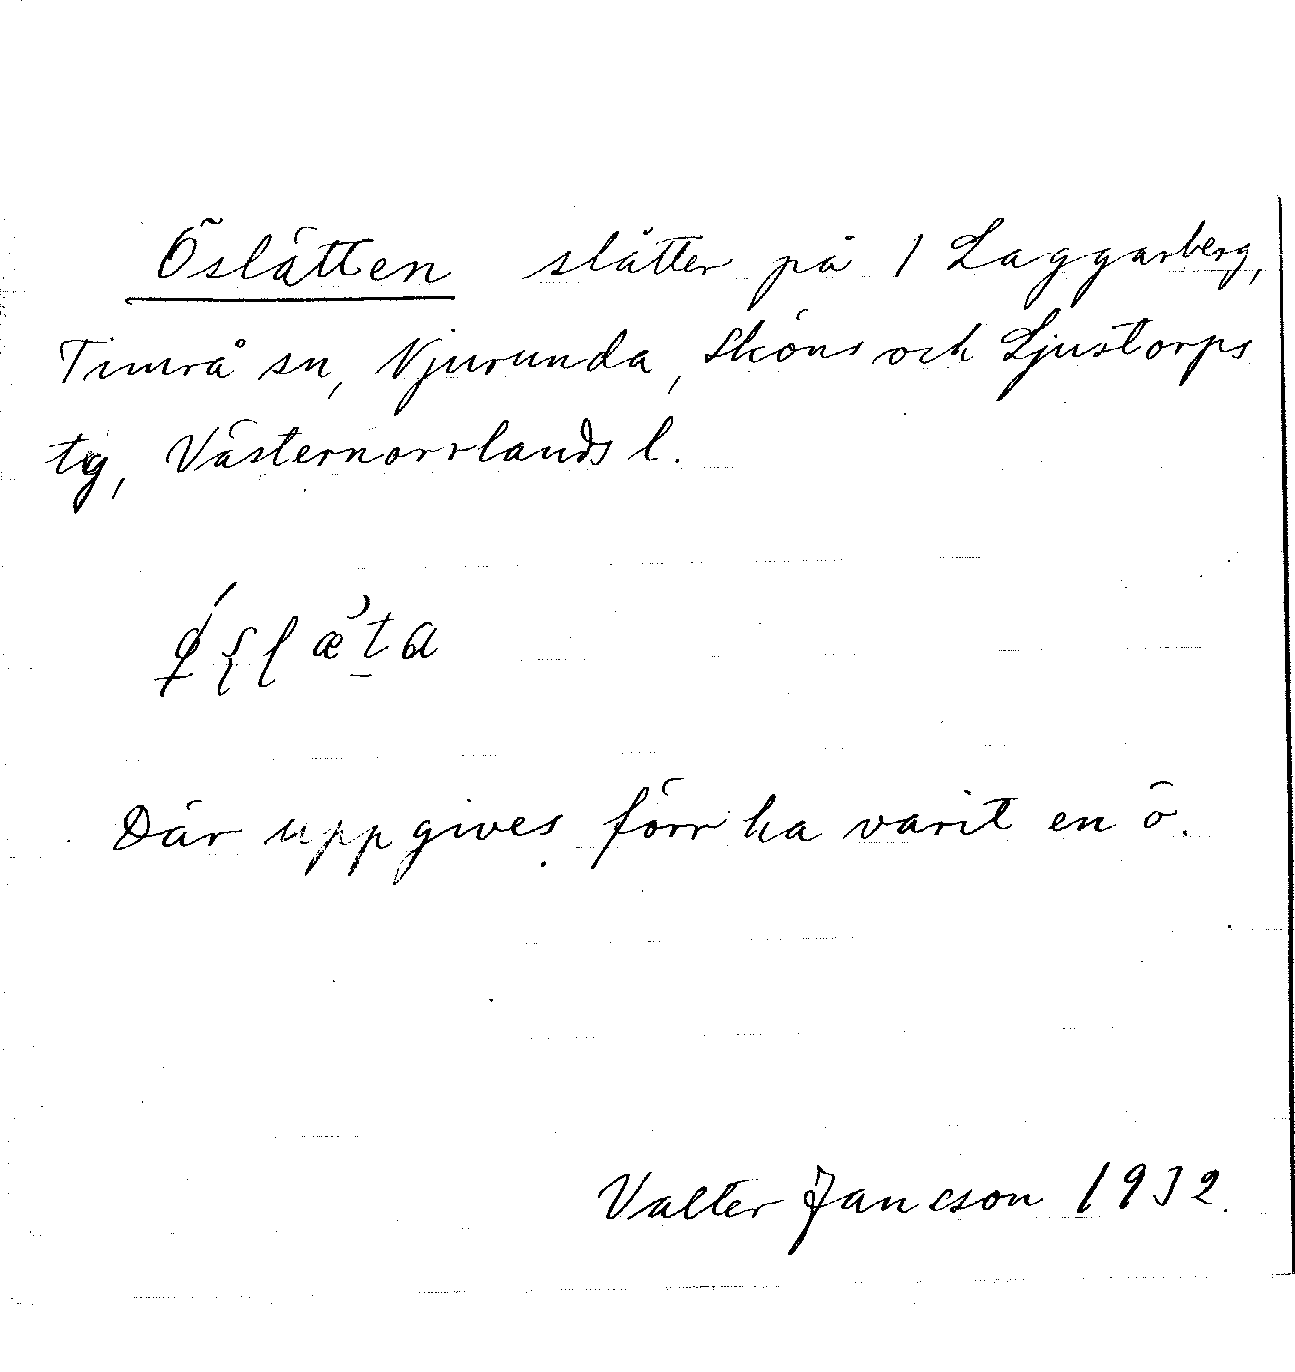 Öslätten slåtter på 1 Laggarberg,
Timrå sn, Njurunda, Sköns och Ljustorps
tg, Västernorrlands l.
Där uppgives förr ha varit en ö.
Valter Jansson 1932.